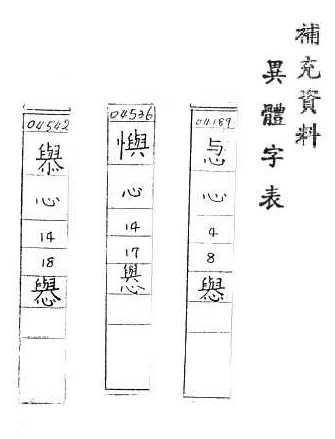 補充資料
異體字表
04189
心
4
8
㦛
04536
懙
心
14
17
㦛
04542
心
14
18
㦛